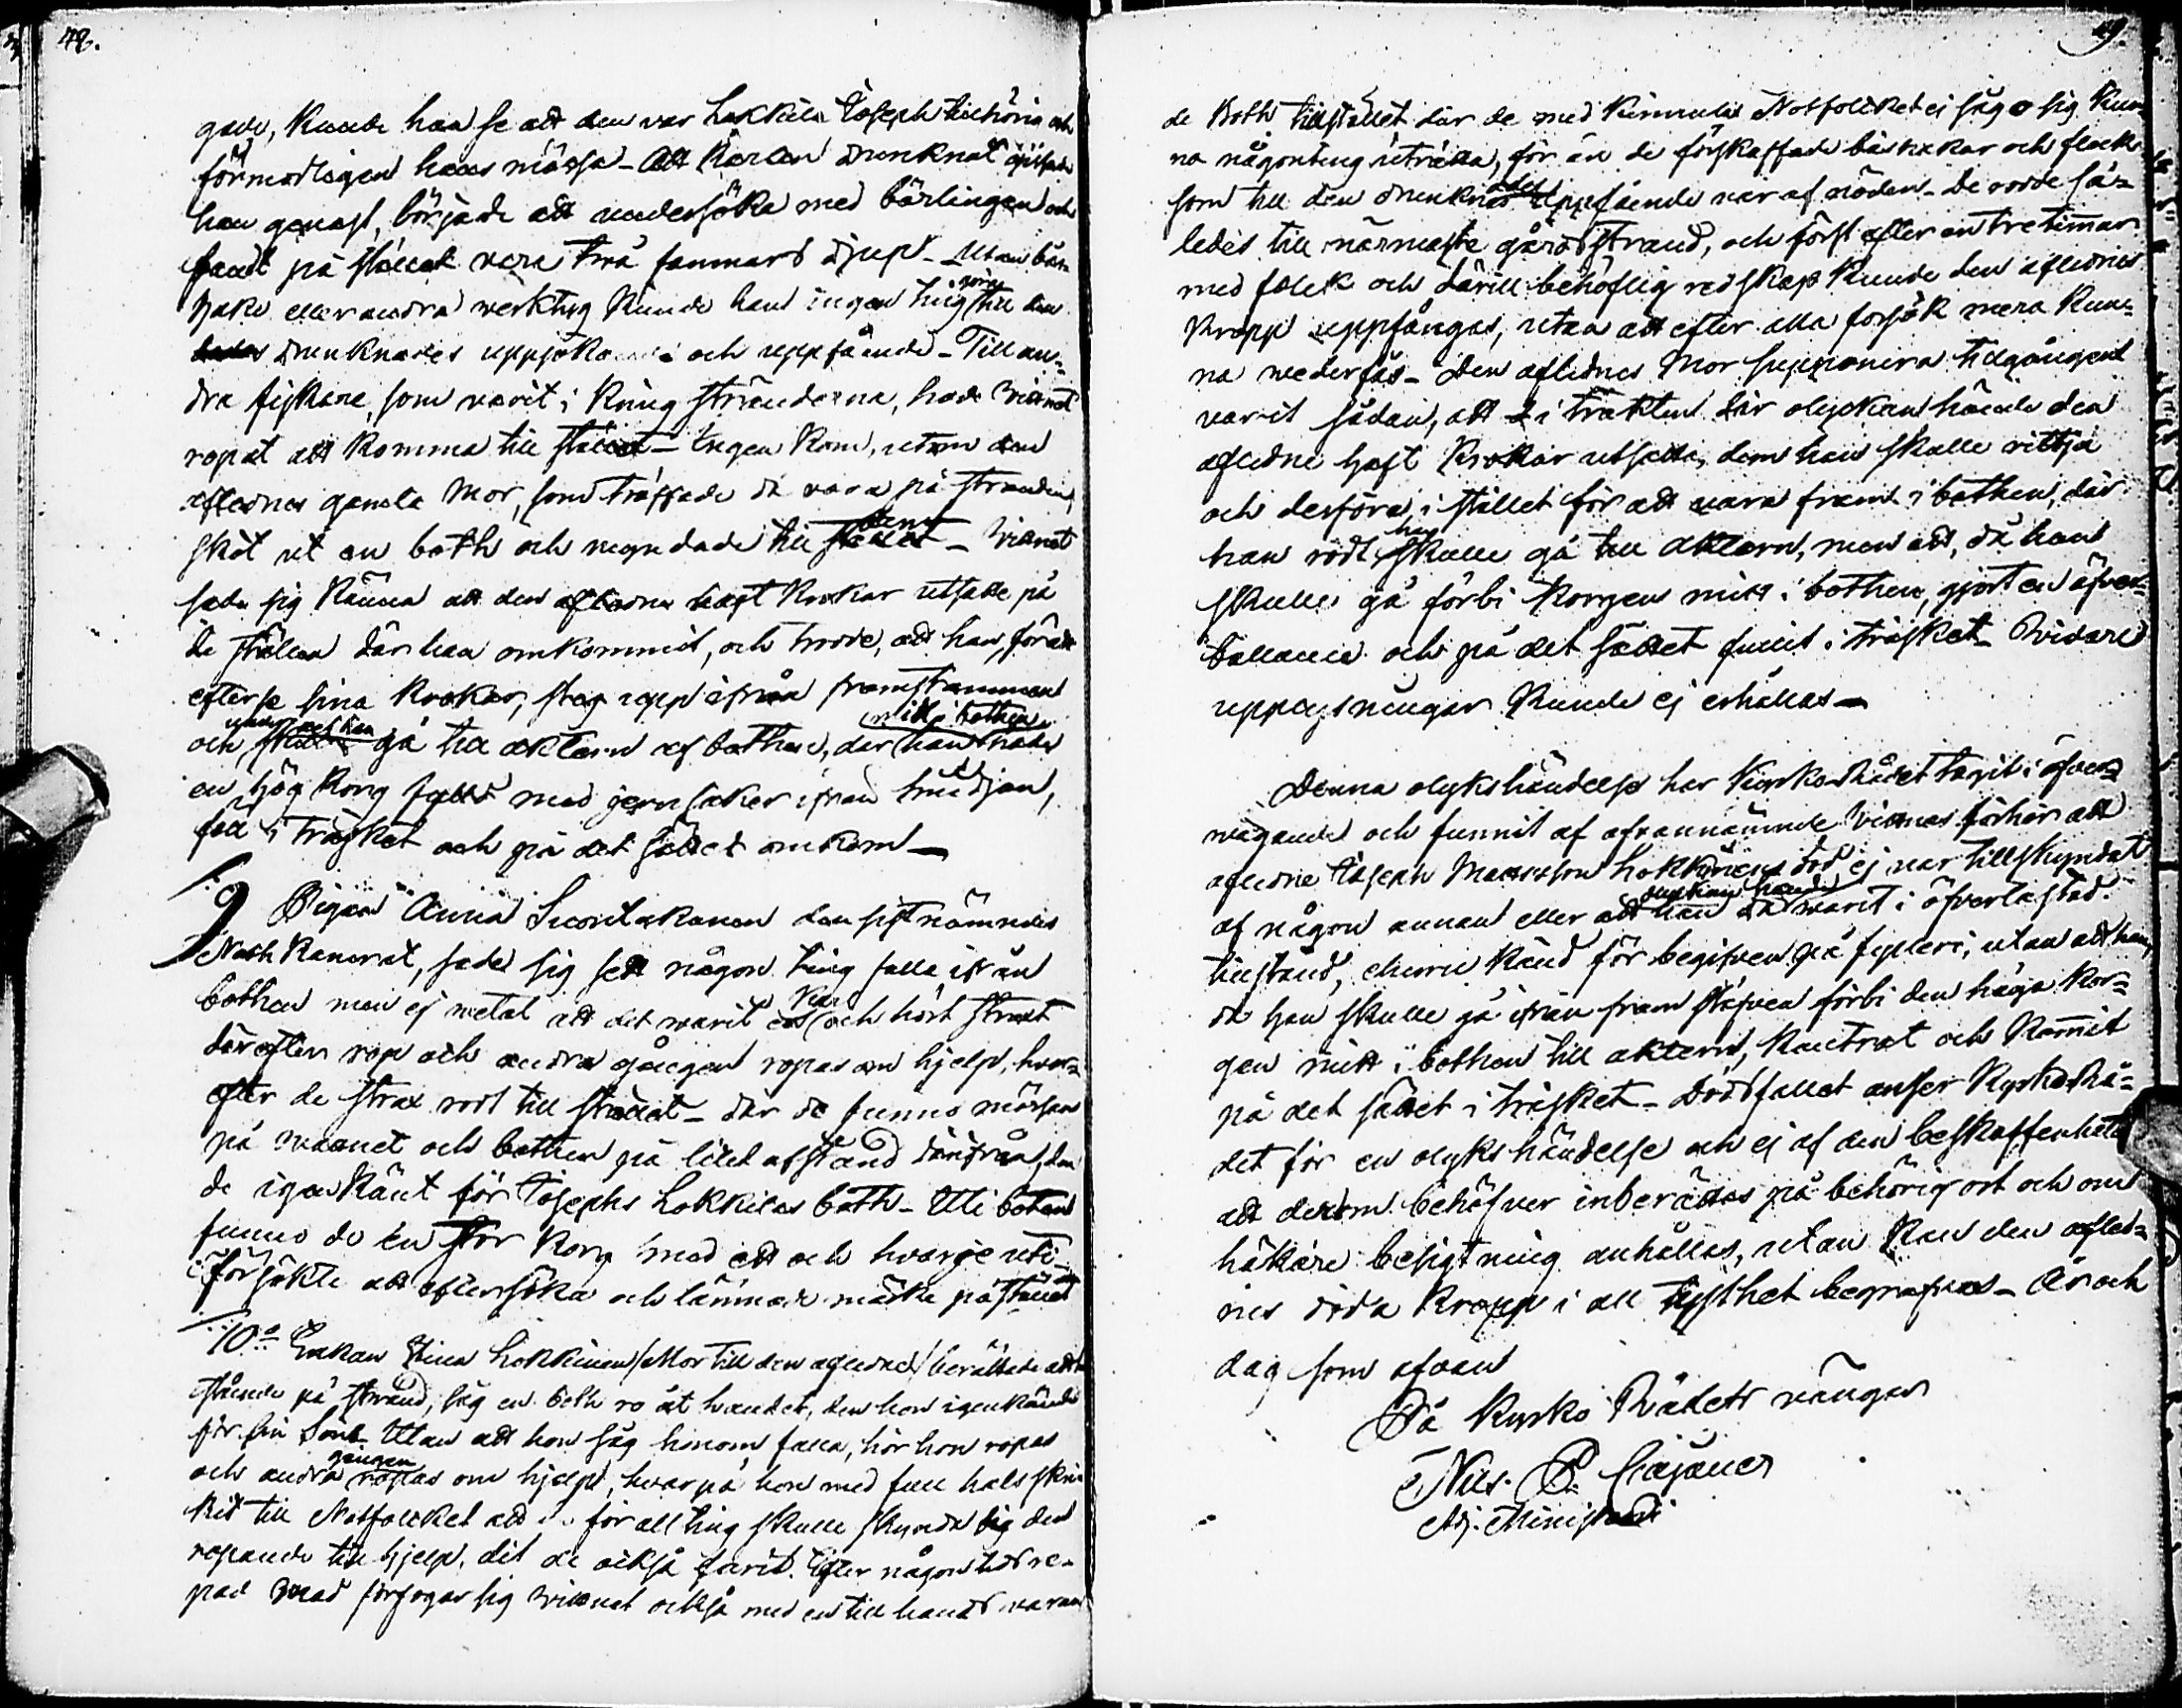 48.
gade, kunde han se att den var Lokkila Josephs tillhörig och
förmodligen hans mössa - Att karlen drunknat gissade
han genast, började att undersöka med bärlingen och
fandt på stället vara två famnars djup - Utan båts
hake eller andra verktyg kunde han ingen ting göra till den
drunknades uppsökande och uppfående - Till an-
dra fiskare, som varit i kring stränderna, hade Vitnet
ropat att komma till stället - Ingen kom, utom den
aflednes gamla Mor, som träffade då vara på stranden,
sköt ut en both och skyndade till dem - Vitnet
sade sig känna att den aflidne haft krokar utsatte på
de ställen där han omkommit, och trodde, att han, för att
efterse sina krokar, steg upp ifrån framstammen
och under det han gå till aktern af bothen, der han mitt i bothen hade
en hög korg fylld med jernsaker ifrån smedjan,
föll i träsket och på det sättet omkom —
9 Pigan Anna Suontakanen den sistnämndes
Noth kamrat, sade sig sett någon ting falla ifrån
bothen men ej vetat att det warit en karl och hört strax
därefter rop och andra gången ropas om hjelp, hvar-
efter de strax rodt till stället - där de funno mössan
på wattnet och bothen på litet afstånd därifrån, den
de igenkänt för Josephs Lokkilas both - Uti boten
funno de en stor korg med ett och hvarje uti -
försökte att eftersöka och lämnade märke på stället
10o Enkan Stina Lokkinen /Mor till den aflidne/ berättade att
stående på strand, såg en both ro åt landet, den hon igenkände
för sin Sons - Utan att hon såg honom falla, hör hon ropas
och andra gången ropas om hjelp, hvarpå hon med full hals skri-
kit till Notfolcket att för all ting skulle skynda sig den
ropande till hjelp, dit de också farit. Efter någon tids re-
pad mod förfogar sig vittnet också med en till hands waran-
49.
de Both till stället där de med Kinnula Notfolcket ej såg sig kun-
na någonting uträtta, för än de förskaffade båtshakar och flock
som till den drunknades uppfående var af nöden - De rodde så-
ledes till närmaste gårdsstrand, och först efter en tre timmar
med folck och därtill behöflig redskap kunde den aflednes
kropp uppfångas, utan att efter alla försök mera kun-
na wederfås - Den aflidnes Mor supponera tillgången
varit sådan, att i träkten där olyckan hände den
aflidne haft krokar utsatta, dem han skulle vittja
och derföre, i stället för att vara fram i bothen, där
han rodt, han skulle gå till aktern, men att, då han
skulle gå förbi korgen mitt i bothen, gjort en öfver-
ballance och på det sättet fallit i träsket - Vidare
upplysningar kunde ej erhållas —
Denna olyckshändelse har Kyrko-Rådet tagit i öfver-
wägande och funnit af ofvannämnde Vitnes förhör att
aflidne Joseph Mattsson Lokkinens död ej var tillskyndat
af någon annan eller att han då olyckan hände warit i öfverlastad
tillstånd, ehuru känd för begifven på fylleri, utan att han,
då han skulle gå ifrån framstäfven förbi den höga kor-
gen mitt i bothen till aktern, kantrat och kommit
på det sättet i träsket - Dödsfallet anser Kyrko Rå-
det för en olyckshändelse och ej af den beskaffenhet
att derom behöfver inberättas på behörig ort och om
besigtning anhållas, utan kan den afled-
nes döda kropp i all tysthet begrafvas - År och
dag som ofvan
På Kyrko Rådets vängar
Nils. P. Cajanus
Adj. Ministerii